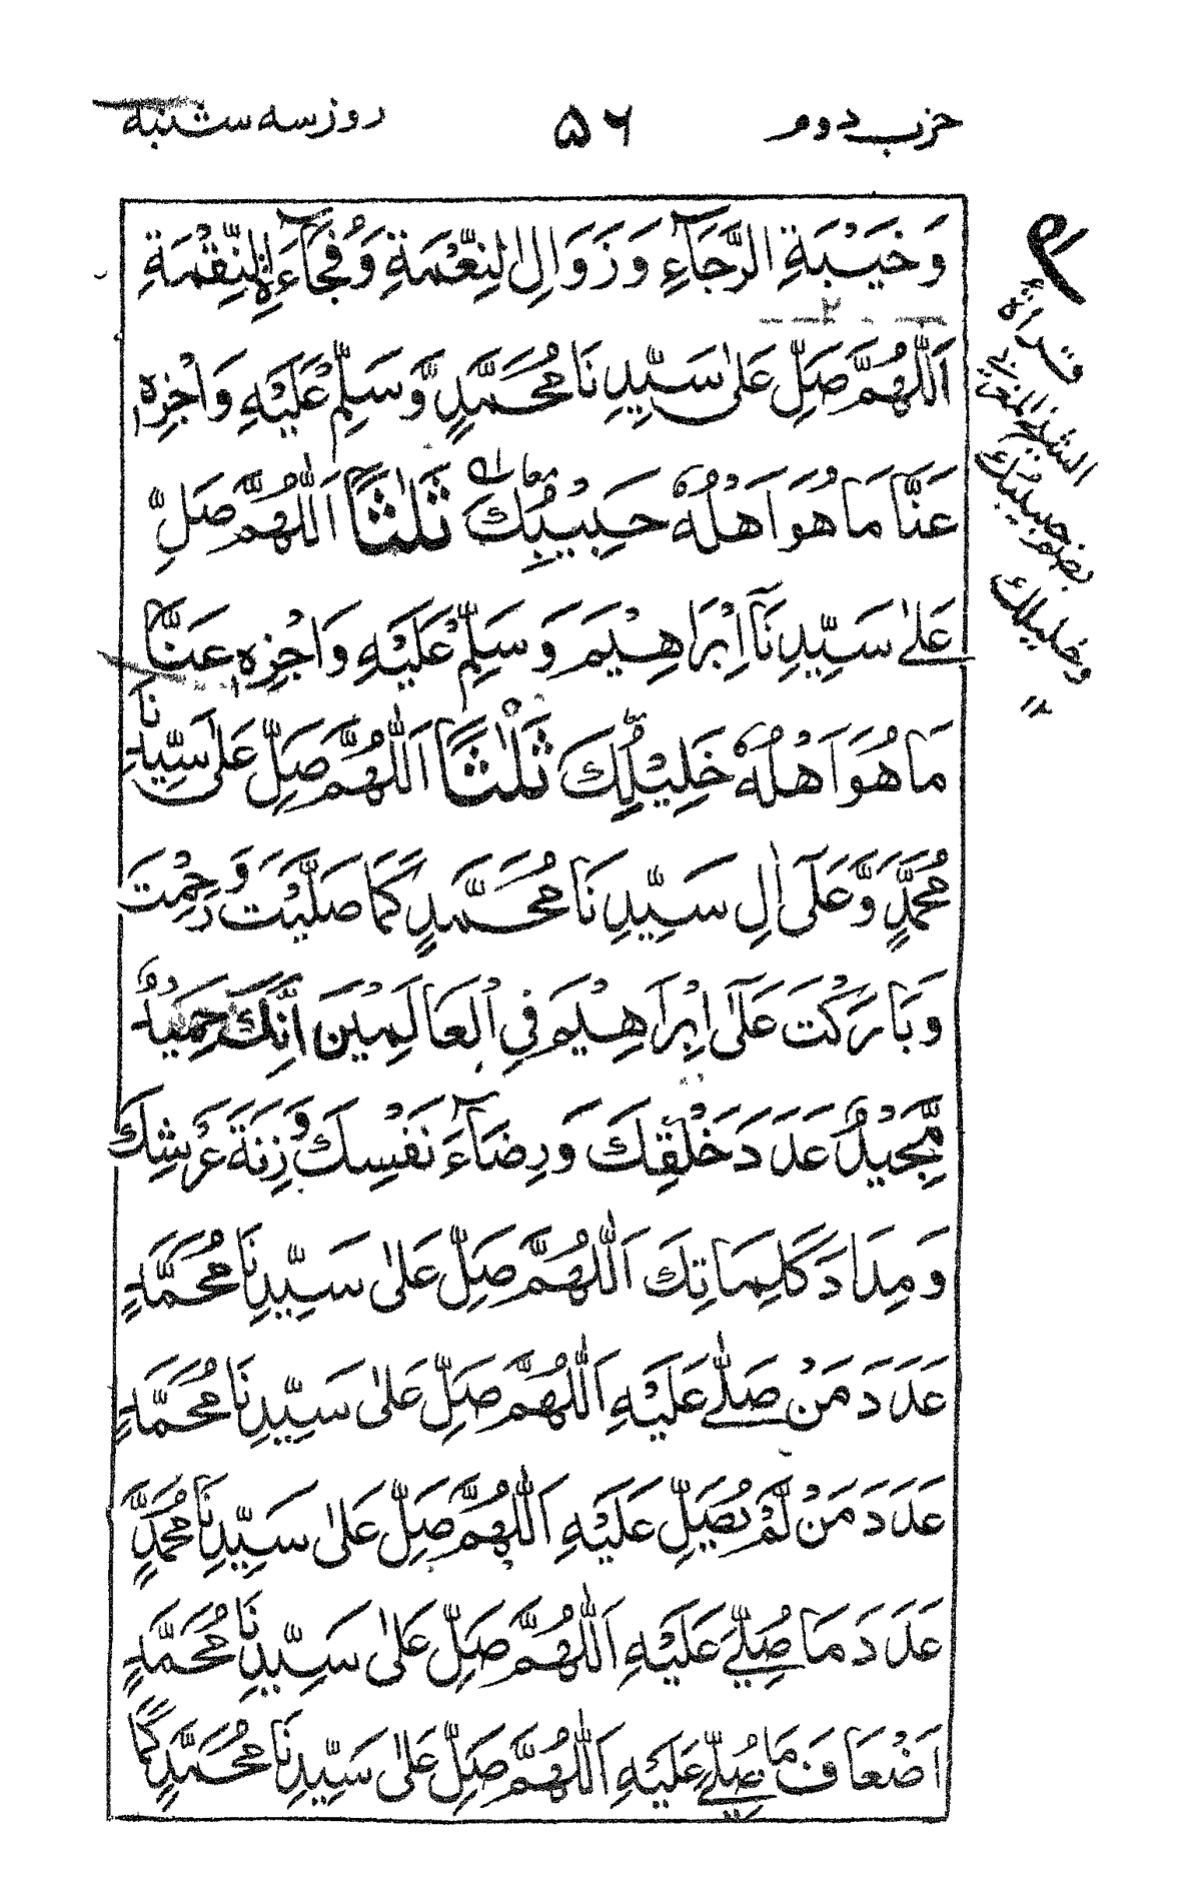 حزب دوم ۵۶ روز سه شنبه
وَخَيْبَةِ الرَّجَآءِ وَزَوَالِ النِّعْمَةِ وَفُجَآءَةِ النِّقْمَةِ
اَللّٰهُمَّ صَلِّ عَلٰى سَيِّدِنَا مُحَمَّدٍ وَّسَلِّمْ عَلَيْهِ وَاجْزِهِ
عَنَّا مَا هُوَ اَهْلُهٗ حَبِيْبُكَ ثَلٰثًا اَللّٰهُمَّ صَلِّ
عَلٰى سَيِّدِنَآ اِبْرَاهِيْمَ وَسَلِّمْ عَلَيْهِ وَاجْزِهِ عَنَّا
مَا هُوَ اَهْلُهٗ خَلِيْلُكَ ثَلٰثًا اَللّٰهُمَّ صَلِّ عَلٰى سَيِّدِنَا
مُحَمَّدٍ وَّعَلٰٓى اٰلِ سَيِّدِنَا مُحَمَّدٍ كَمَا صَلَّيْتَ وَرَحِمْتَ
وَبَارَكْتَ عَلٰٓى اِبْرَاهِيْمَ فِي الْعَالَمِيْنَ اِنَّكَ حَمِيْدٌ
مَّجِيْدٌ عَدَدَ خَلْقِكَ وَرِضَآءَ نَفْسِكَ وَزِنَةَ عَرْشِكَ
وَمِدَادَ كَلِمَاتِكَ اَللّٰهُمَّ صَلِّ عَلٰى سَيِّدِنَا مُحَمَّدٍ
عَدَدَ مَنْ صَلّٰى عَلَيْهِ اَللّٰهُمَّ صَلِّ عَلٰى سَيِّدِنَا مُحَمَّدٍ
عَدَدَ مَنْ لَّمْ يُصَلِّ عَلَيْهِ اَللّٰهُمَّ صَلِّ عَلٰى سَيِّدِنَا مُحَمَّدٍ
عَدَدَ مَا صُلِّيَ عَلَيْهِ اَللّٰهُمَّ صَلِّ عَلٰى سَيِّدِنَا مُحَمَّدٍ
اَضْعَافَ مَا صُلِّيَ عَلَيْهِ اَللّٰهُمَّ صَلِّ عَلٰى سَيِّدِنَا مُحَمَّدٍ كَمَا
قرأة
حبيبك
وخليلك
۱۲